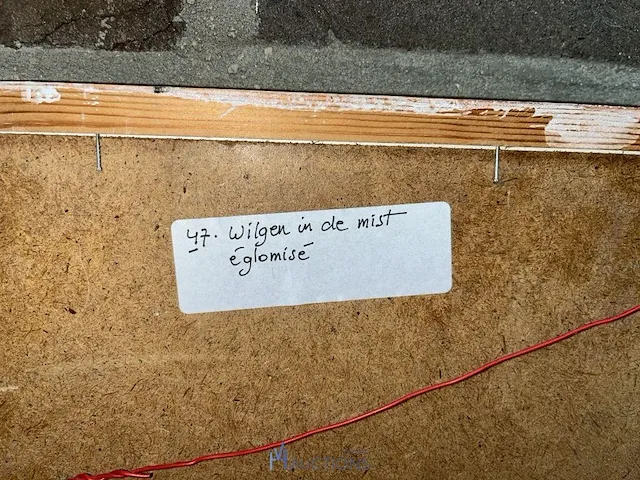 47. Wilgen in de mist
églomisé